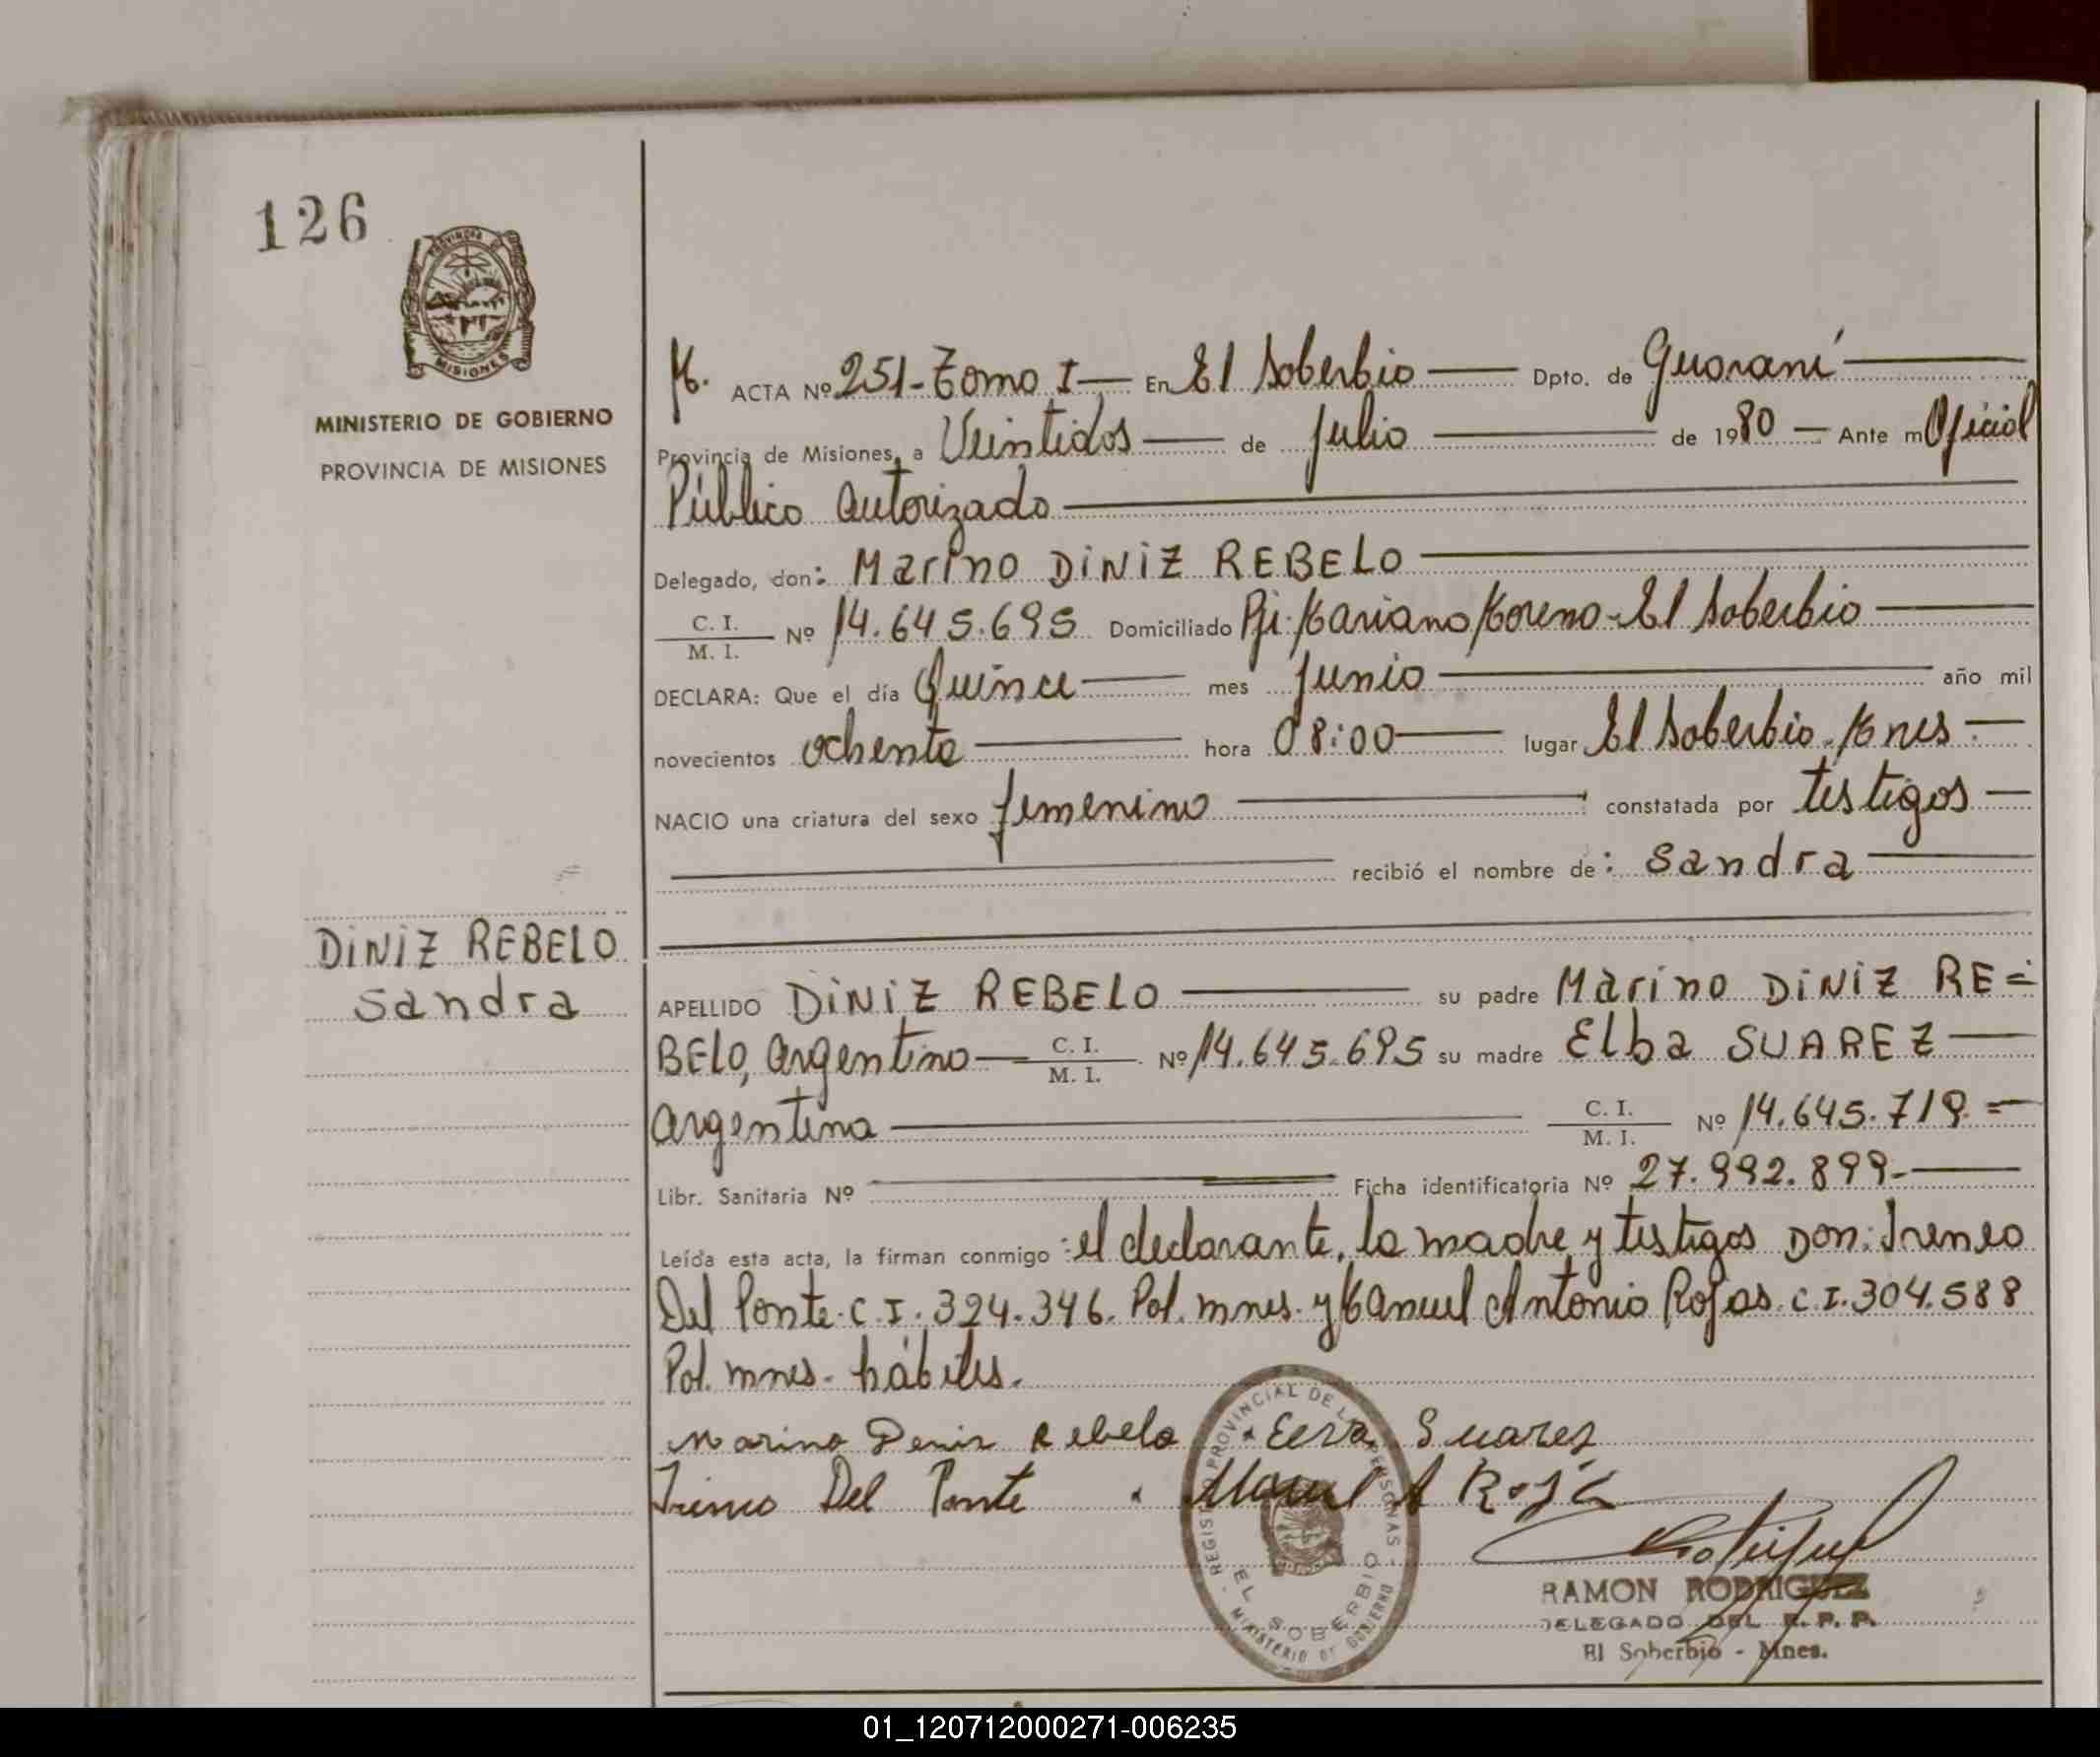 126
MINISTERIO DE GOBIERNO
PROVINCIA DE MISIONES
M. ACTA Nº 251-Tomo I— En El Soberbio — Dpto. de Guaraní —
Provincia de Misiones, a Veintidos — de Julio — de 1980 — Ante mí Oficial
Público Autorizado —
Delegado, don: Marino DINIZ REBELO —
C. I. / M. I. Nº 14.645.695 Domiciliado Pje. Mariano Moreno-El Soberbio —
DECLARA: Que el día Quince — mes Junio — año mil
novecientos ochenta — hora 08:00 — lugar El Soberbio-Mnes —
NACIO una criatura del sexo femenino — constatada por testigos —
— recibió el nombre de: Sandra —
DINIZ REBELO
Sandra
APELLIDO DINIZ REBELO — su padre Marino DINIZ RE=
BELO, argentino — C. I. / M. I. Nº 14.645.695 su madre Elba SUAREZ —
argentina — C. I. / M. I. Nº 14.645.719.=
Libr. Sanitaria Nº — Ficha identificatoria Nº 27.992.899.—
Leída esta acta, la firman conmigo: el declarante, la madre y testigos Don: Ireneo
Del Ponte. C.I. 324.346. Pol. mnes. y Manuel Antonio Rojas. C.I. 304.588
Pol. mnes. hábiles.
Marino Deniz Rebelo Suares
Ireneo Del Ponte Manuel A
REGISTRO PROVINCIAL DE LAS PERSONAS
EL SOBERBIO
MINISTERIO DE GOBIERNO
RAMON RODRIGUEZ
DELEGADO DEL R. P. P.
El Soberbio - Mnes.
01_120712000271-006235